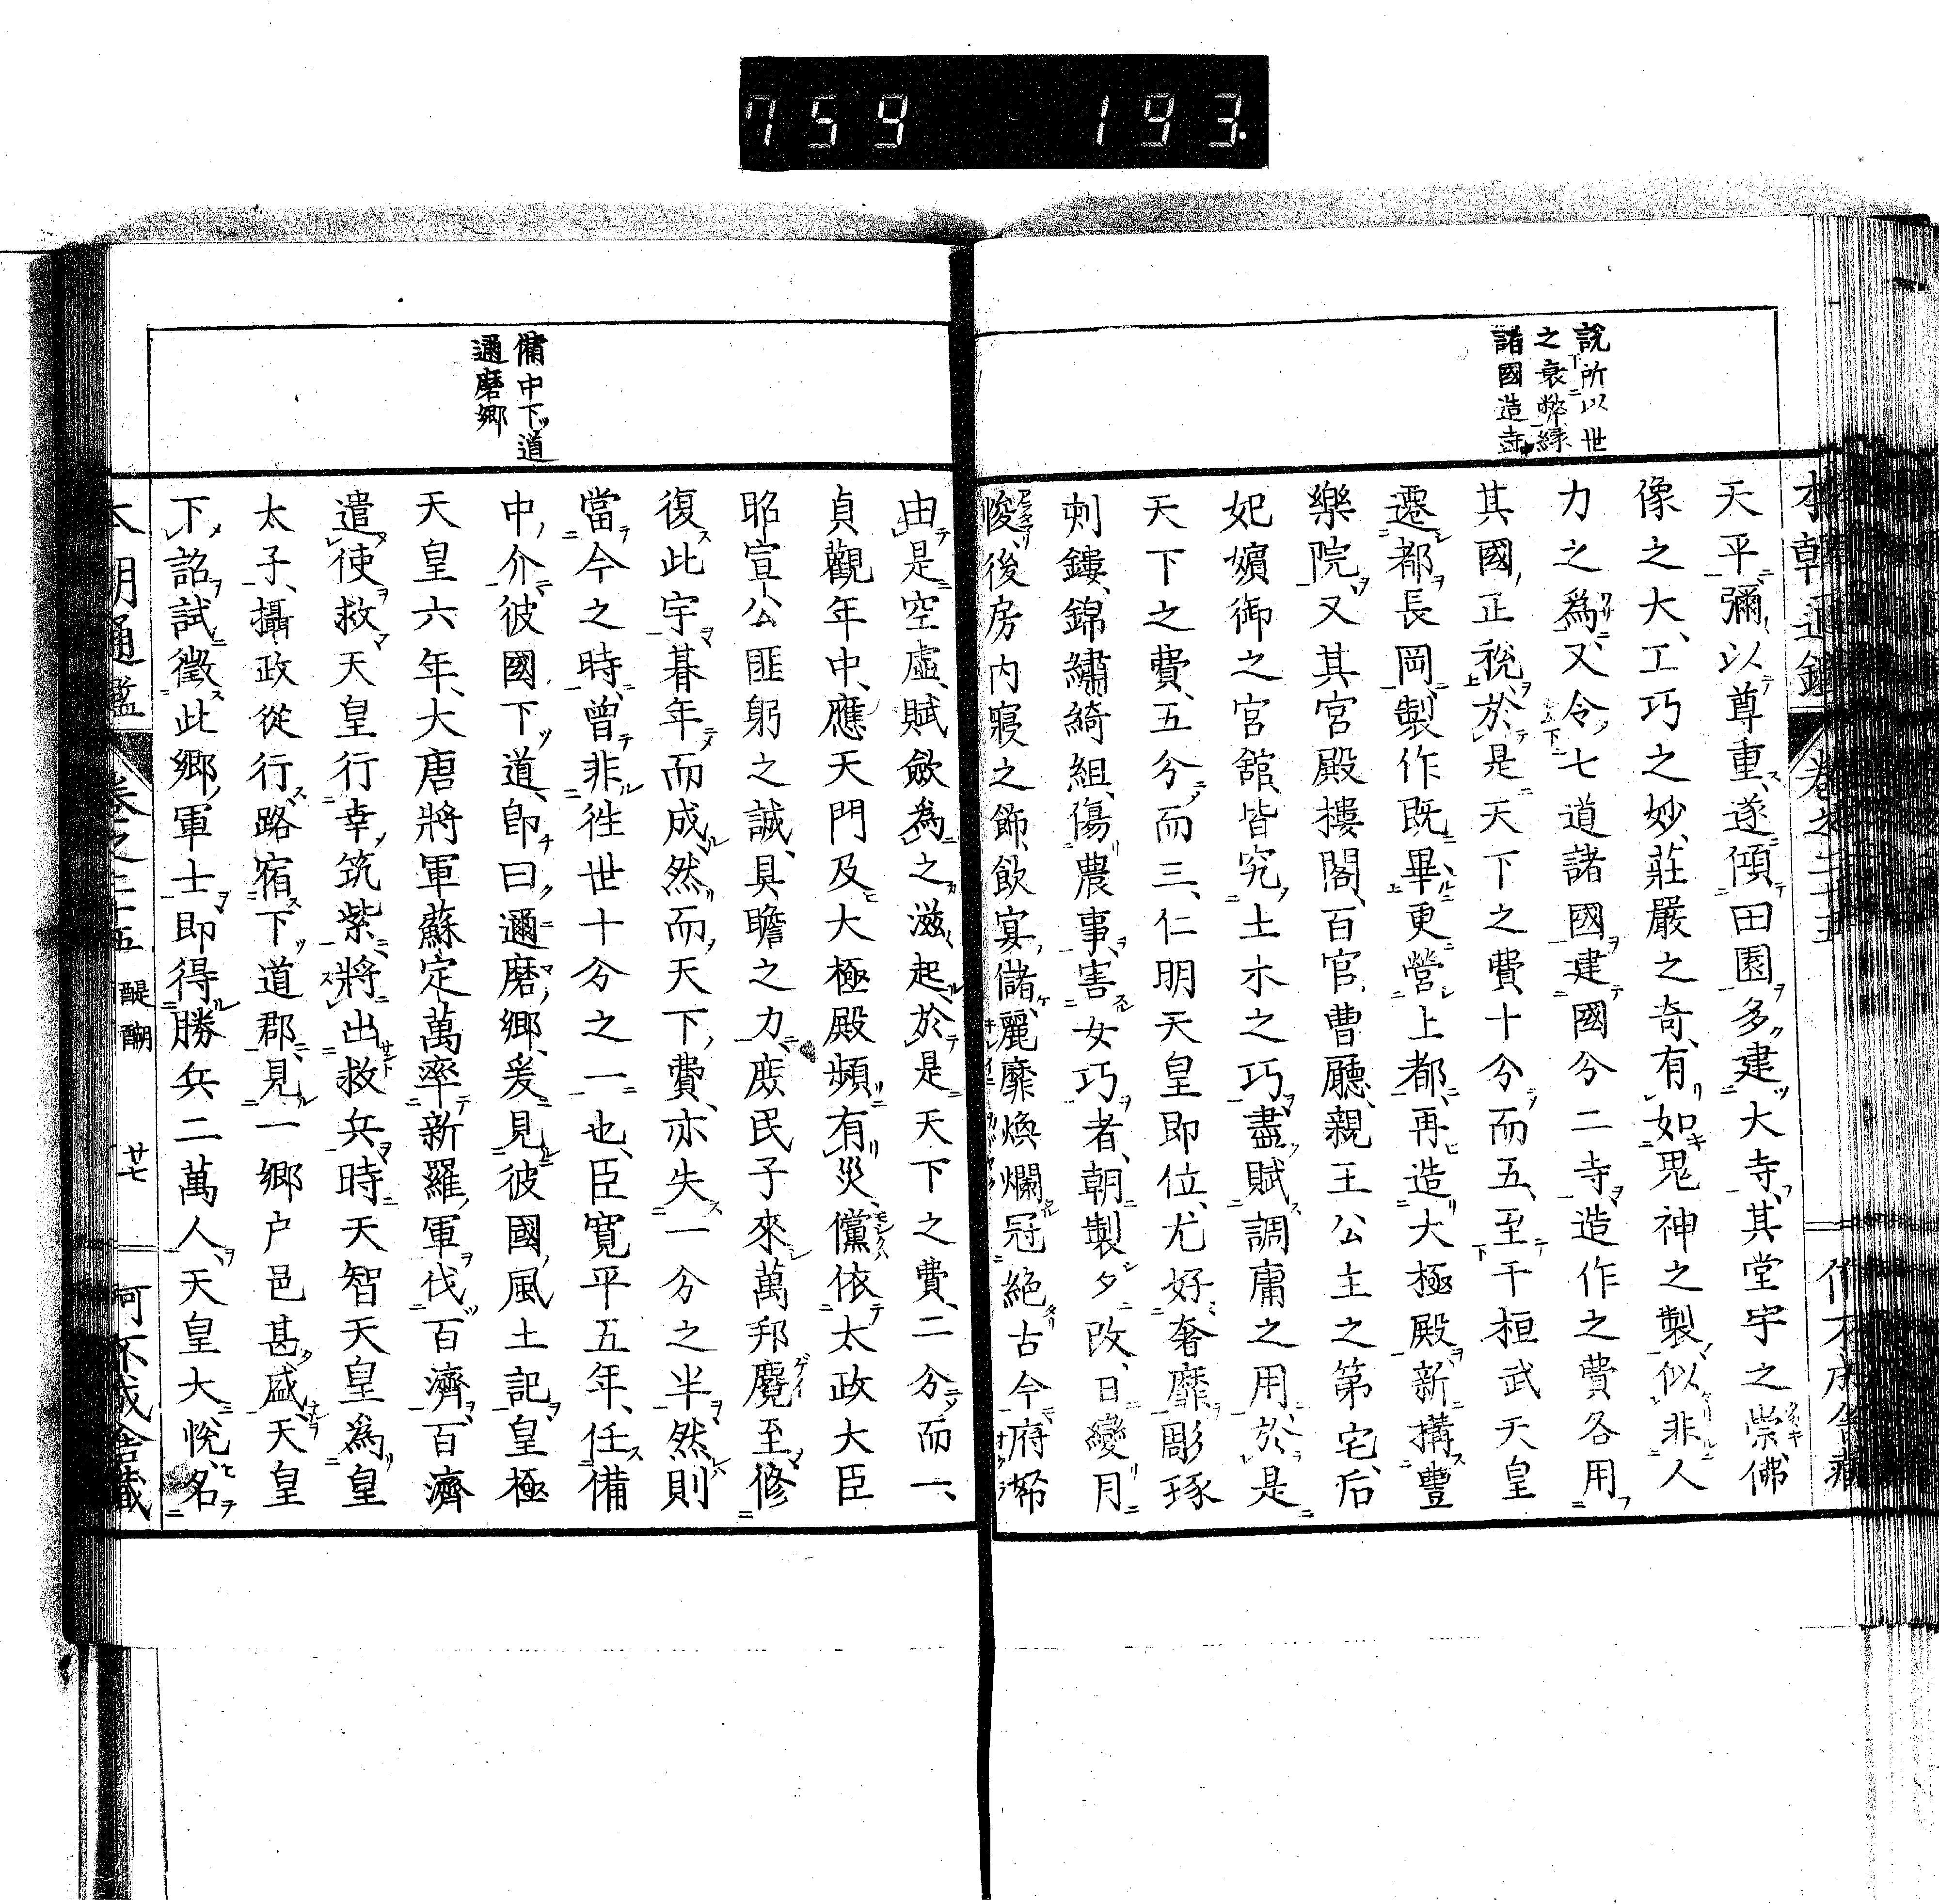 759 193.
說所以世
之衰弊緣
諸國造寺
天平彌以尊重遂傾田園多建大寺其堂宇之崇佛
像之大工巧之妙莊嚴之奇有如鬼神之製似非人
力之爲又令七道諸國建國分二寺造作之費各用
其國正稅於是天下之費十分而五至于桓武天皇
遷都長岡製作既畢更營上都再造大極殿新構豐
樂院又其宮殿樓閣百官曹廳親王公主之第宅后
妃嬪御之宮館皆究土木之巧盡賦調庸之用於是
天下之費五分而三仁明天皇即位尤好奢靡彫琢
刻鏤錦繡綺組傷農事害女巧者朝製夕改日變月
悛後房内寢之飾飲宴儲麗靡煥爛冠絕古今府帑
備中下道
邇磨鄉
由是空虛賦斂為之滋起於是天下之費二分而一
貞觀年中應天門及大極殿頻有災儻依太政大臣
昭宣公匪躬之誠具瞻之力庶民子來萬邦麕至修
復此宇朞年而成然而天下費亦失一分之半然則
當今之時曾非往世十分之一也臣寬平五年任備
中介彼國下道郡曰邇磨鄉爰見彼國風土記皇極
天皇六年大唐將軍蘇定萬率新羅軍伐百濟百濟
遣使救天皇行幸筑紫將出救兵時天智天皇爲皇
太子攝政從行路宿下道郡見一鄉户邑甚盛天皇
下詔試徵此鄉軍士即得勝兵二萬人天皇大悅名
本朝通鑑 卷之二十五 醍醐 廿七